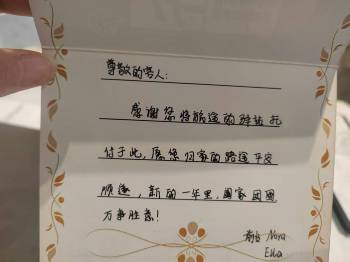 尊敬的客人：
感谢您将旅途的驿站托
付于此，愿您归家的路途平安
顺遂，新的一年里，阖家团圆
万事胜意！
前台 Nora
Ella